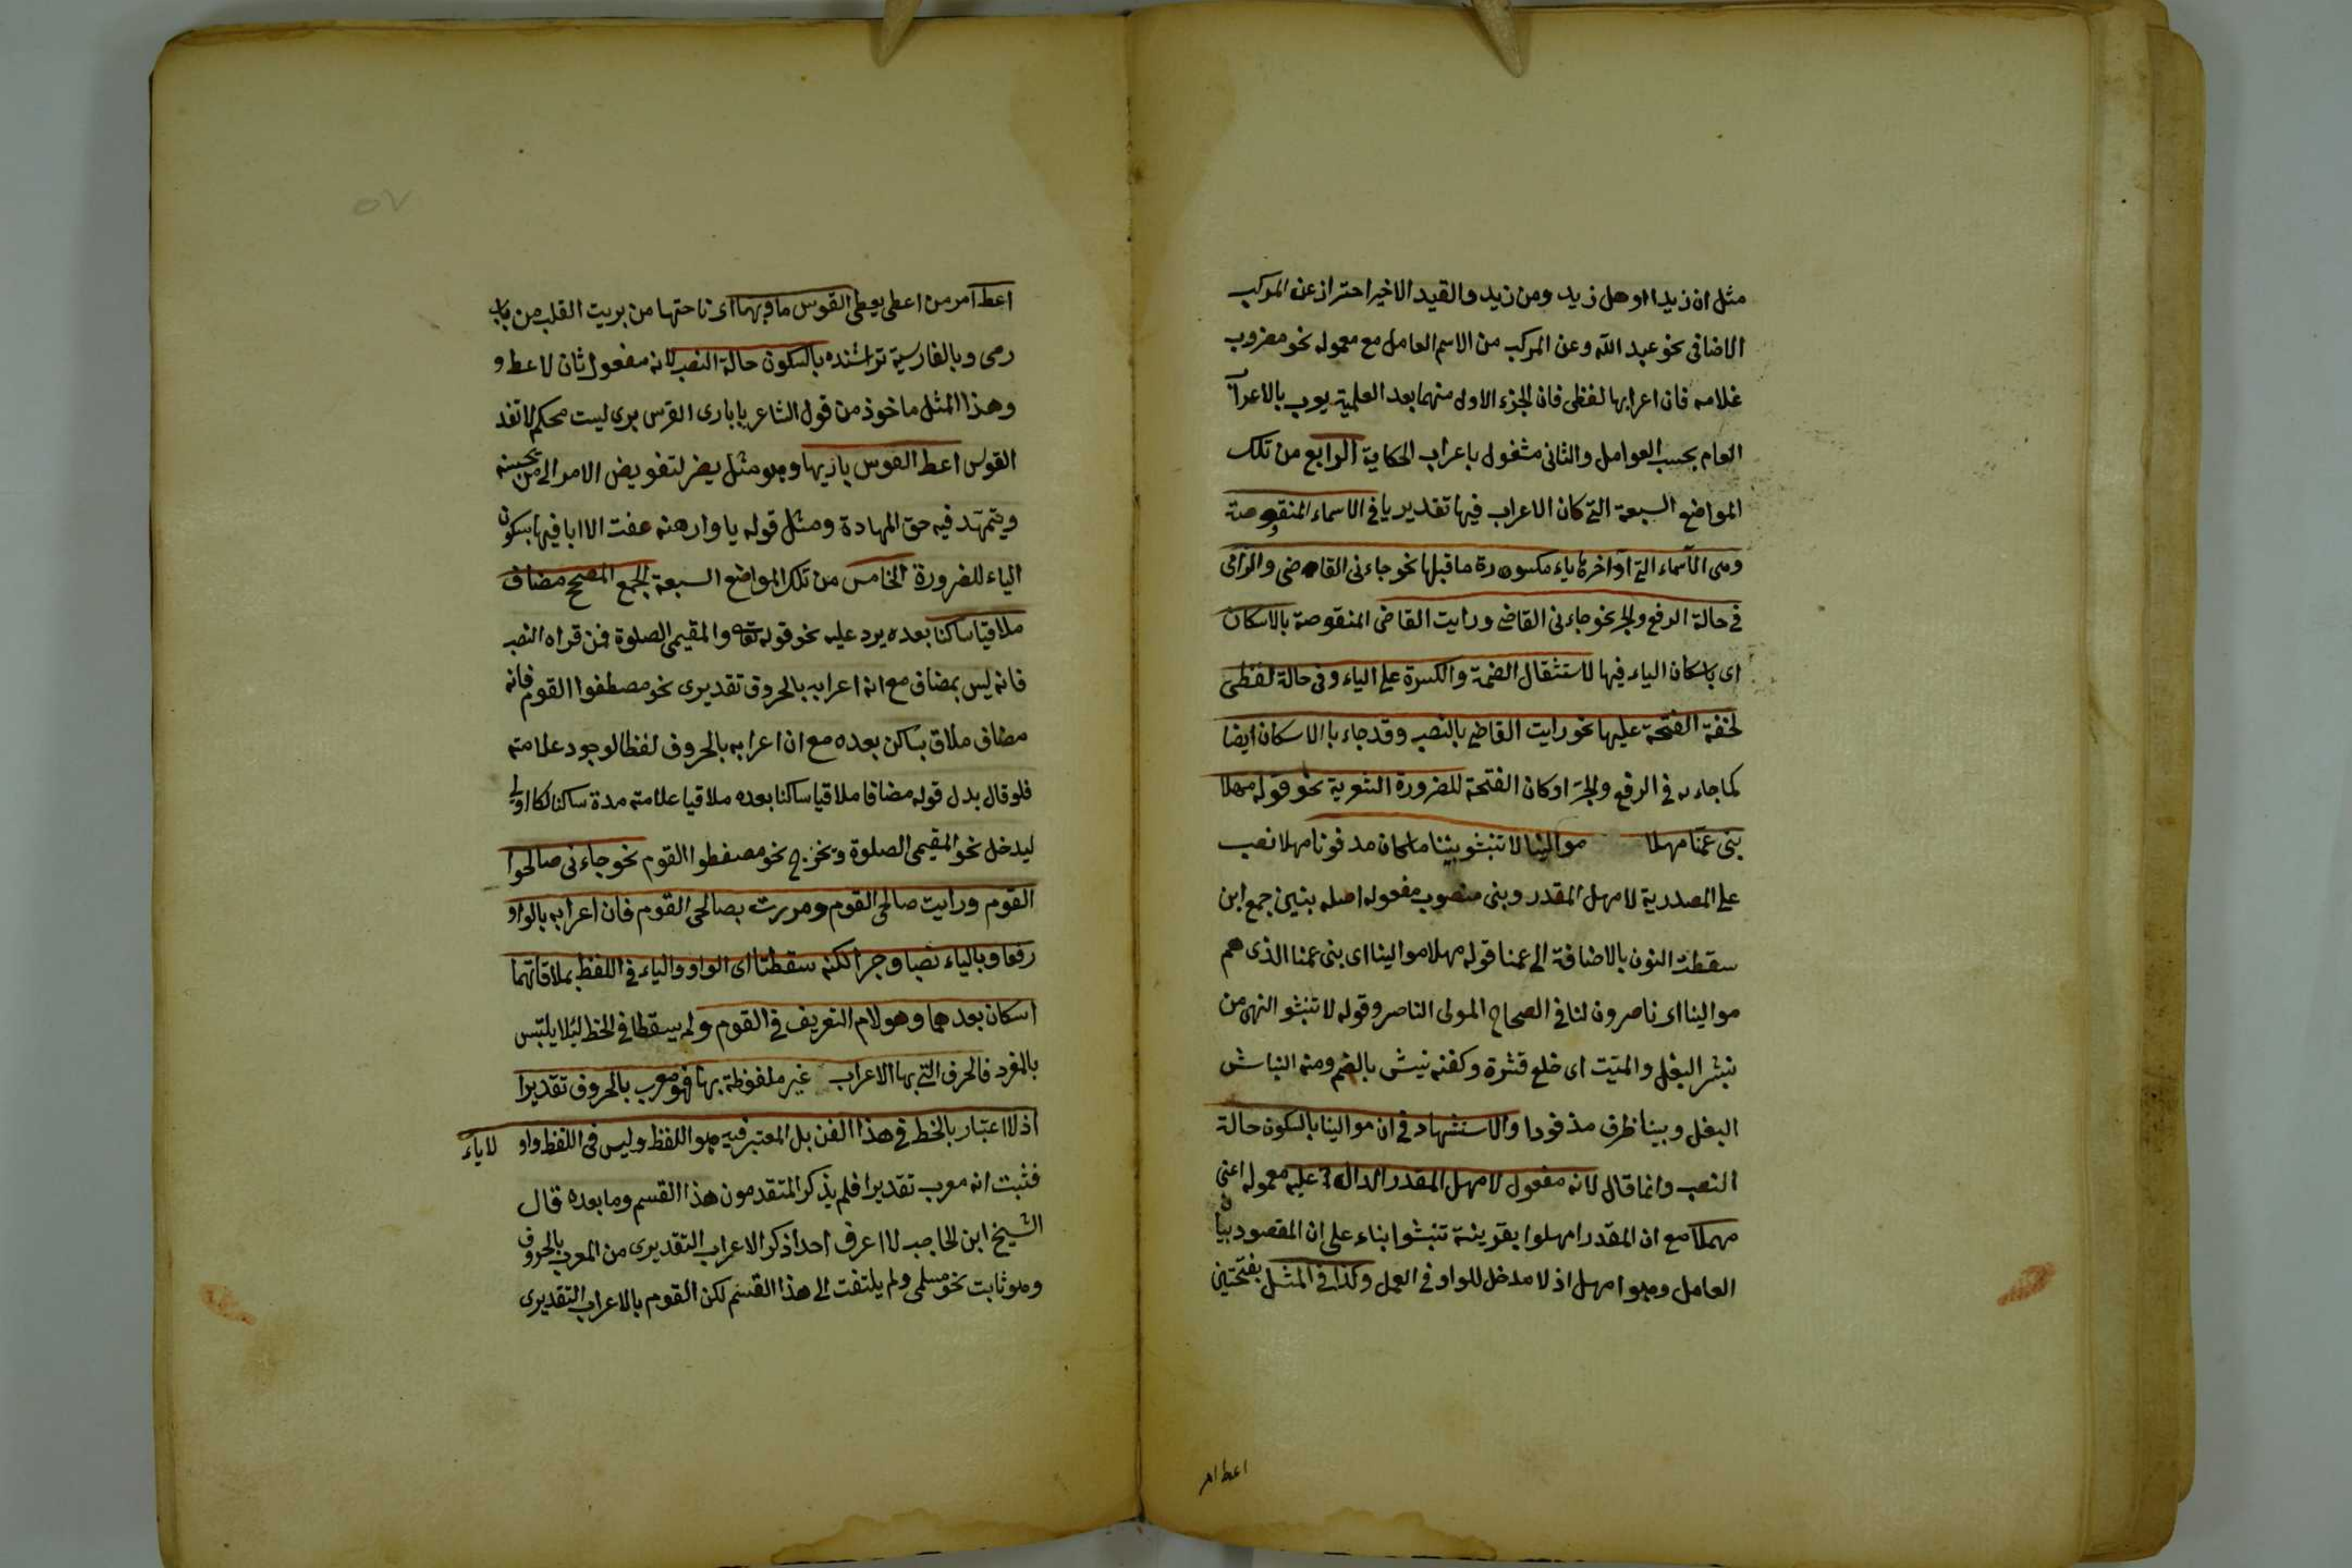 مثل ان زيدا او هل زيد ومن زيد والقيد الاخير احتراز عن المركب
الاضافى نحو عبد الله وعن المركب من الاسم العامل مع معموله نحو مضروب
غلامه فان اعرابها لفظى فان الجزء الاول منهما بعد العلمية يعرب بالاعرا
العام بحسب العوامل والثانى مشغول باعراب الحكاية الرابع من تلك
المواضع السبعة التى كان الاعراب فيها تقديريا فى الاسماء المنقوصة
وهى الاسماء التى اواخرها ياء مكسورة ما قبلها نحو جاءنى القاضى والرامى
فى حالة الرفع والجر نحو جاءنى القاضى ورايت القاضى المنقوصة بالاسكان
اى باسكان الياء فيها لاستثقال الضمة والكسرة على الياء وفى حالة لفظى
لخفة الفتحة عليها نحو رايت القاضى بالنصب وقد جاء بالاسكان ايضا
كما جاء به فى الرفع والجر اوكان الفتحة للضرورة الشعرية نحو قوله مهلا
بنى عمنا مهلا موالينا لا تنبشو بيننا ماكان مدفونا مهلا نصب
على المصدرية لامهل المقدر وبنى منصوب مفعوله اصله بنين جمع ابن
سقطت النون بالاضافة الى عمنا قوله مهلا موالينا اى بنى عمنا الذى هم
موالينا اى ناصرون لنا فى الصحاح المولى الناصر وقوله لا تنبشو النهى من
نبش البغل والميت اى خلع قشرة وكفنه نبش بالضم ومنه النباش
البغل وبينا ظرف مذفودا والاستشهاد فى ان موالينا بالسكون حالة
النصب وانما قال لانه مفعول لامهل المقدر الدال عليه معموله اعنى
مهملا مع ان المقدر امهلوا بقرينة تنبشوا بناء على ان المقصود بيان
العامل وهو امهل اذ لا مدخل للواو فى العمل وكذا فى المثل بفتحتين
اعط امر
اعط امر من اعطى يعطى القوس ما وبها اى ناحتها من بريت القلب من باب
رمى وبالفارسية تراشنده بالسكون حالة النصب لانه مفعول ثان لاعط و
وهذا المثل ماخوذ من قول الشاعر يا بارى القوس برى ليست محكم لا تفد
القوس اعط القوس باريها وهو مثل يضر لتفويض الامر الى من يحسنه
ويتمهد فيه حق المهادة ومثل قوله يا وار هنه عفت الا ابا فيها بسكون
الياء للضرورة الخامس من تلك المواضع السبعة الجمع المصحح مضاف
ملاقيا ساكنا بعده يرد عليه نحو قوله تعالى والمقيمى الصلوة فمن قراه النصب
فانه ليس بمضاف مع انه اعرابه بالحروف تقديرى نحو مصطفوا القوم فانه
مضاف ملاق بساكن بعده مع ان اعرابه بالحروف لفظا لوجود علامته
فلو قال بدل قوله مضافا ملاقيا ساكنا بعده ملاقيا علامته مدة ساكنا لكا اولى
ليدخل نحو المقيمى الصلوة ويخرج نحو مصفطوا القوم نحو جاءنى صالحوا
القوم ورايت صالحى القوم ومررت بصالحى القوم فان اعرابه بالواو
رفعا وبالياء نصبا وجرا لكنه سقطتا اى الواو والياء فى اللفظ بملاقاتهما
اسكان بعدهما وهو لام التعريف فى القوم ولم يسقطا فى الخط لئلا يلتبس
بالمفرد فالحرف التى بها الاعراب غير ملفوظة بها فهو معرب بالحروف تقديرا
اذ لا اعتبار بالخط فى هذا الفن بل المعتبر فيه هو اللفظ وليس فى اللفظ واو لا ياء
فثبت انه معرب تقديرا فلم يذكر المتقدمون هذا القسم وما بعده قال
الشيخ ابن الحاجب لا اعرف احدا ذكر الاعراب التقديرى من المعرب بالحروف
وهو ثابت نحو مسلمى ولم يلتفت الى هذا القسم لكن القوم بالاعراب التقديرى
٥٧